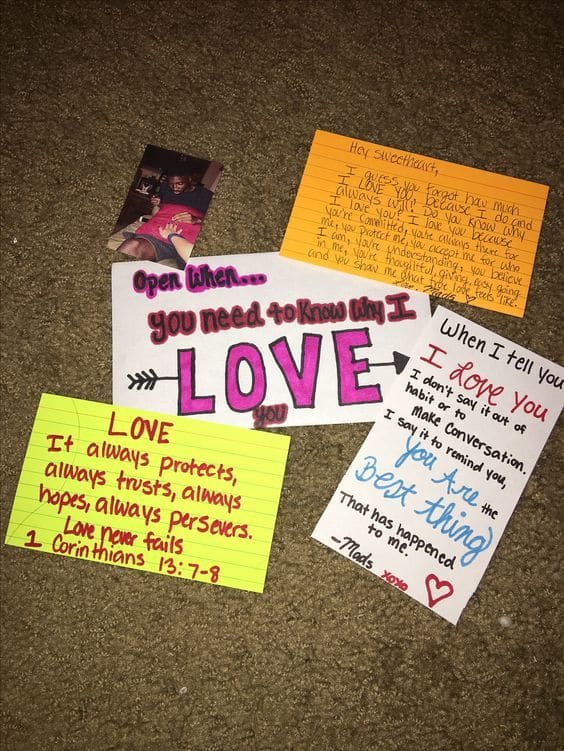 Hey sweetheart,
I guess you forgot how much
I LOVE YOU because I do and
always will! Do you know why
I love you? I love you because
you're committed, you're always there for
me, you protect me, you accept me for who
I am, you're understanding, you believe
in me, you're thoughtful, giving, easy going
and you show me what true love feels like.
Open When...
you need to know why I
LOVE
you
When I tell you
I Love You
I don't say it out of
habit or to
make Conversation.
I say it to remind you,
You Are the
Best thing
That has happened
to me.
-Mads
xoxo
LOVE
It always protects,
always trusts, always
hopes, always persevers.
Love never fails
1 Corinthians 13:7-8